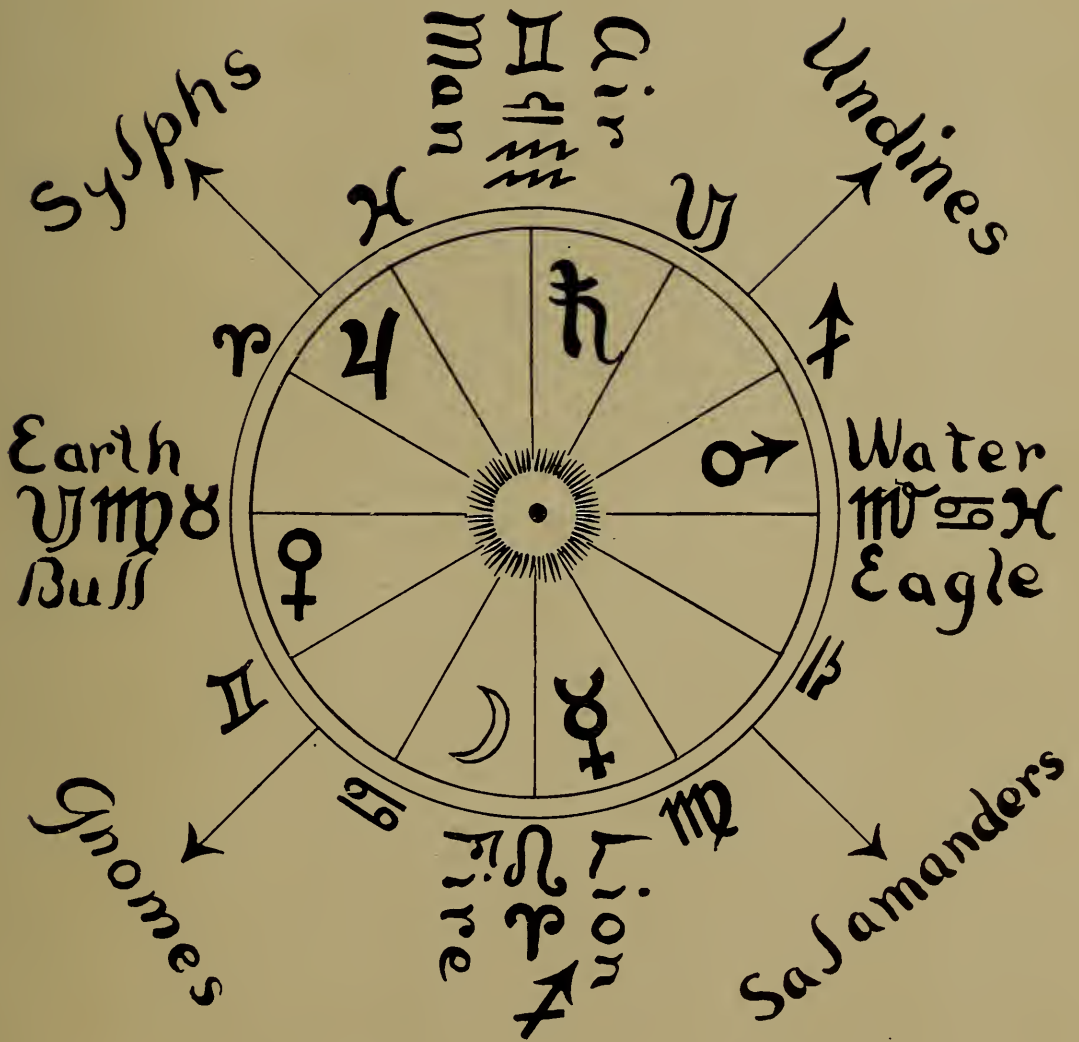 Sylphs
Man
♊
♎
♒
Air
Undines
♓
♑
♈
♃
♄
♐
♂
Earth
♑ ♍ ♉
Bull
Water
♏ ♋ ♓
Eagle
♀
☉
♊
♎
☽
☿
♋
♍
Fire
♌
♈
♐
Lion
Gnomes
Salamanders